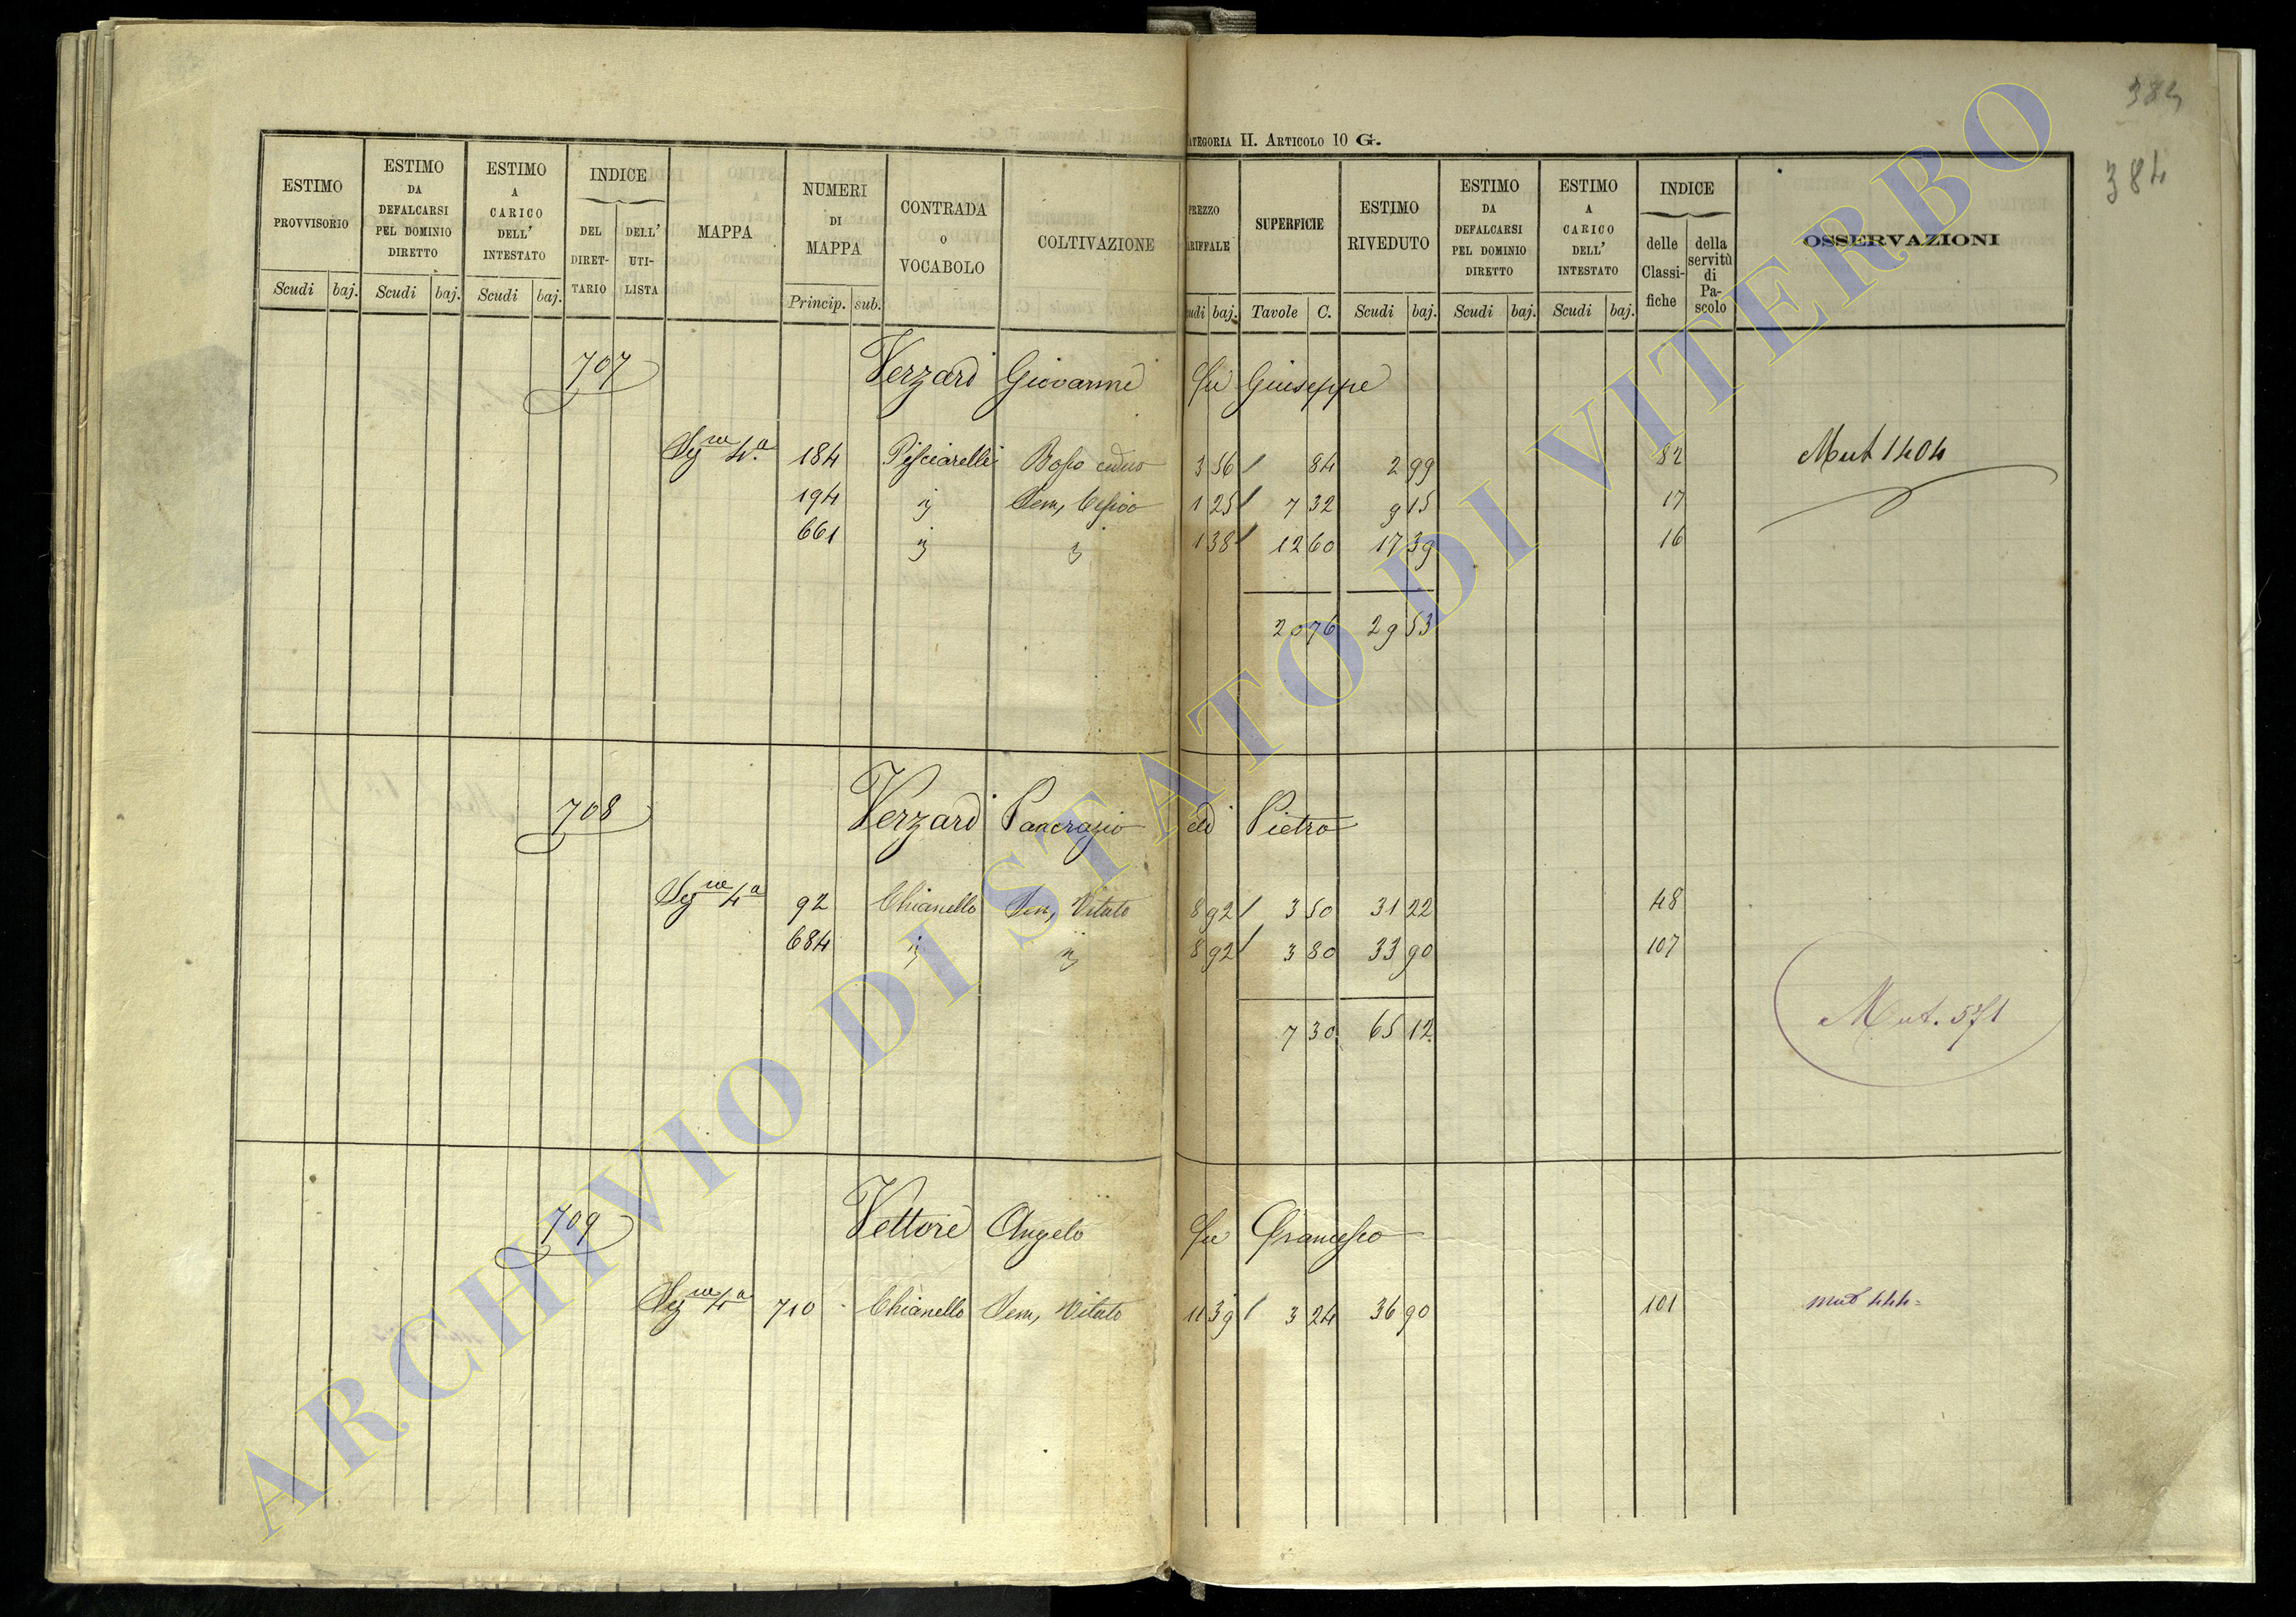 384
CATEGORIA II. ARTICOLO 10 G.
384
ESTIMO PROVVISORIO Scudi baj. ESTIMO DA DEFALCARSI PEL DOMINIO DIRETTO Scudi baj. ESTIMO A CARICO DELL' INTESTATO Scudi baj. INDICE DEL DIRETTARIO DELL' UTILISTA MAPPA NUMERI DI MAPPA Princip. sub. CONTRADA O VOCABOLO COLTIVAZIONE PREZZO TARIFFALE Scudi baj. SUPERFICIE Tavole C. ESTIMO RIVEDUTO Scudi baj. ESTIMO DA DEFALCARSI PEL DOMINIO DIRETTO Scudi baj. ESTIMO A CARICO DELL' INTESTATO Scudi baj. INDICE delle Classifiche della servitù di Pascolo OSSERVAZIONI
707 Verzari Giovanni fu Giuseppe
Segne 4a 184 Pisciarelli Bosco ceduo 3 56 84 2 99 82 Mut 1404
194 ij Sem, Cessivo 1 25 7 32 9 15 17
661 ij ij 1 38 12 60 17 39 16
20 76 29 53
708 Verzari Pancrazio di Pietro
Segne 4a 92 Chianello Sem, Vitato 8 92 3 50 31 22 48
684 ij ij 8 92 3 80 33 90 107
Mut. 571
7 30 65 12
709 Vettori Angelo fu Francesco
Segne 4a 710 Chianello Sem, Vitato 11 39 3 24 36 90 101 Mut 444
ARCHIVIO DI STATO DI VITERBO